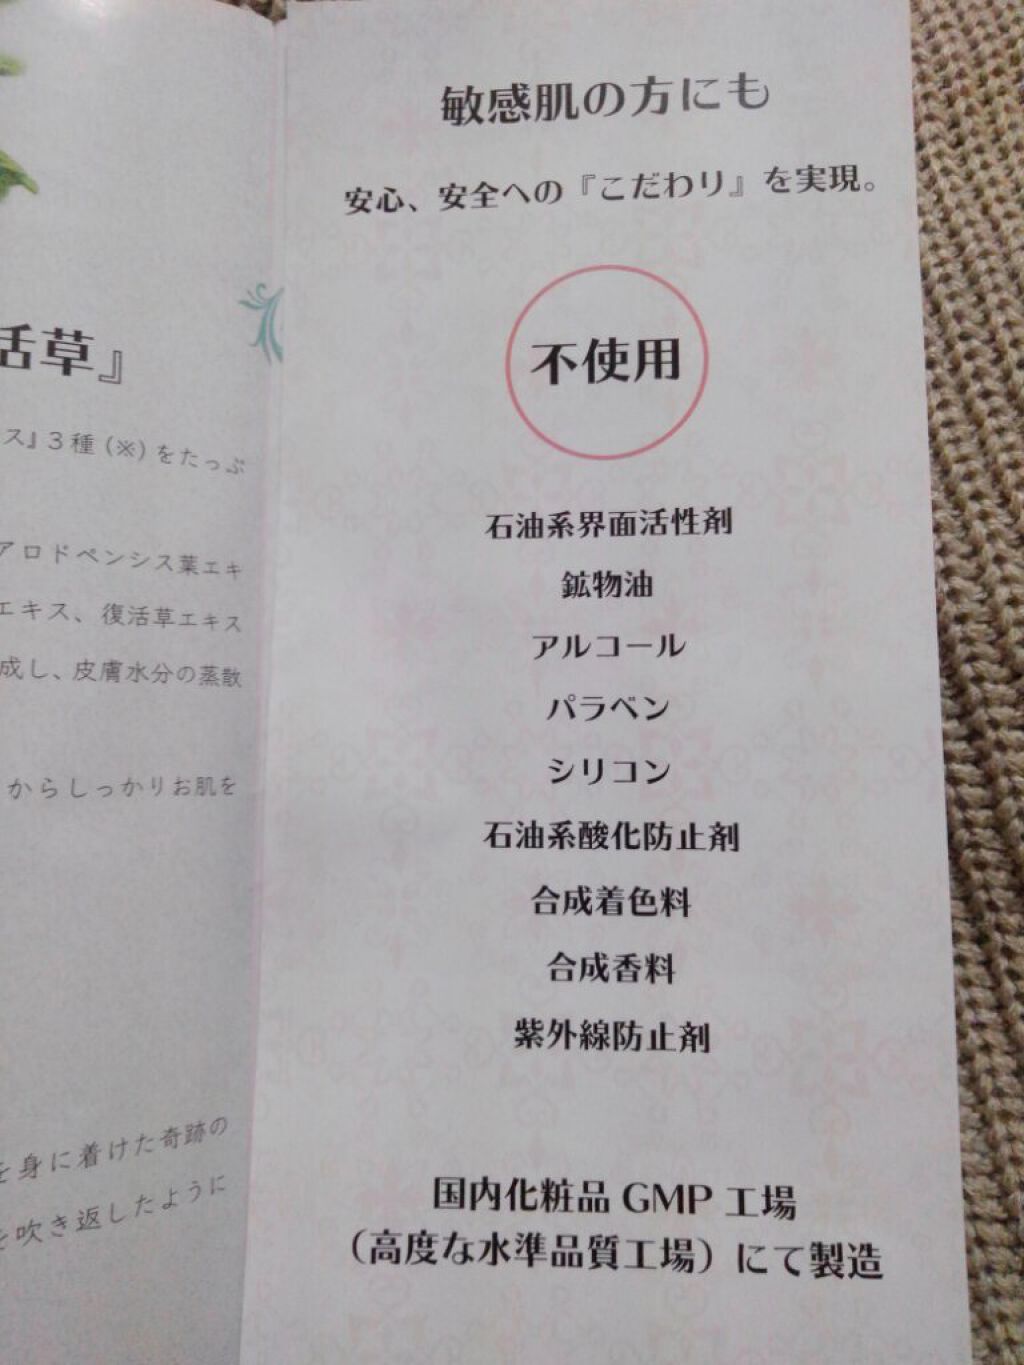 活草』
ス』3種(※)をたっぷ
アロドペンシス葉エキ
エキス、復活草エキス
成し、皮膚水分の蒸散
からしっかりお肌を
を身に着けた奇跡の
を吹き返したように
敏感肌の方にも
安心、安全への『こだわり』を実現。
不使用
石油系界面活性剤
鉱物油
アルコール
パラベン
シリコン
石油系酸化防止剤
合成着色料
合成香料
紫外線防止剤
国内化粧品 GMP 工場
(高度な水準品質工場)にて製造